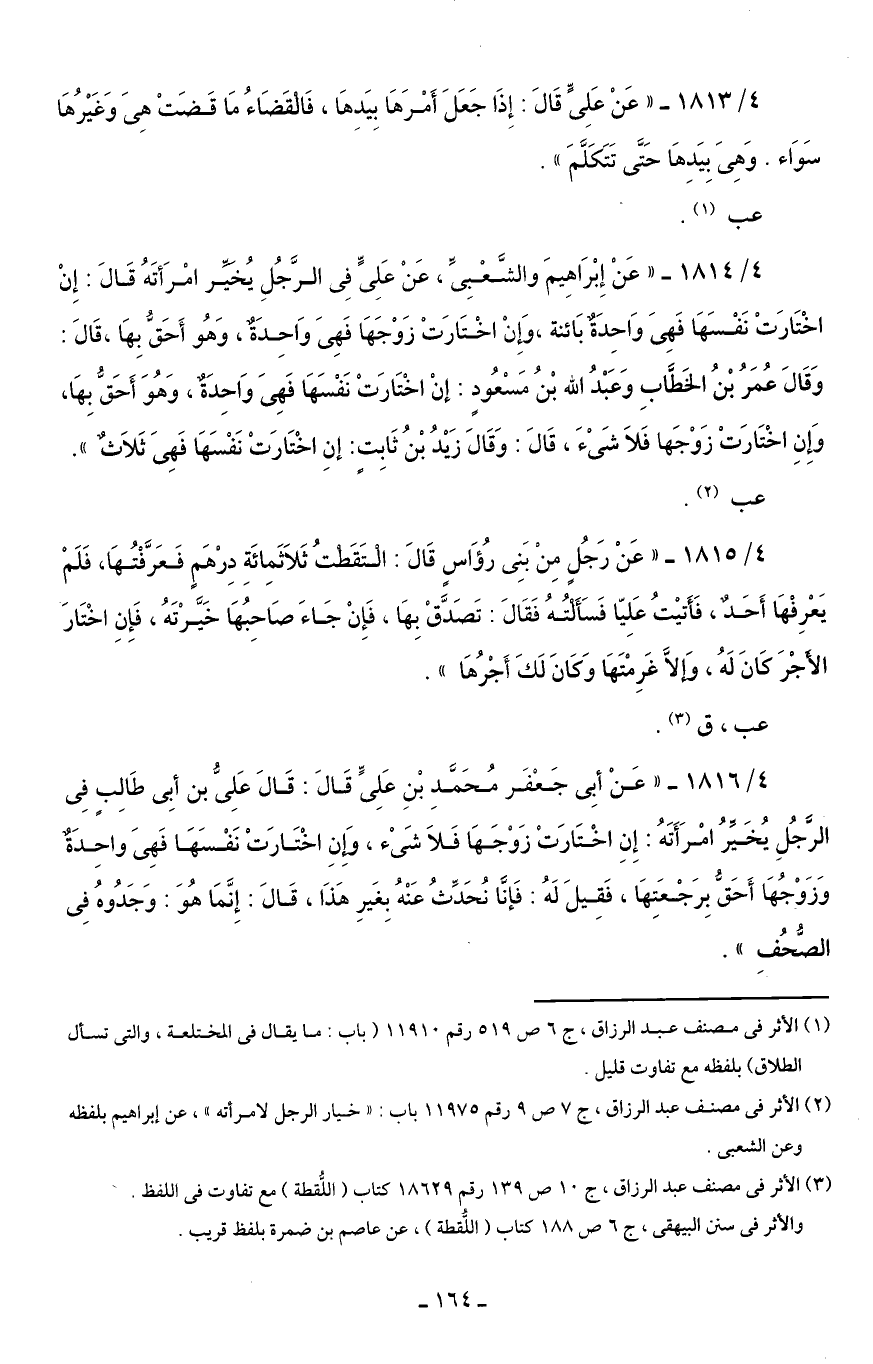 ٤/ ١٨١٣ ـ « عَنْ عَلِىٍّ قَالَ : إِذَا جَعَلَ أَمْـرَهَا بِيَدِهَا ، فَالْقَضَاءُ مَا قَـضَتْ هِىَ وَغَيْرُهَا
سَوَاء . وَهِىَ بِيَدِهَا حَتَّى تَتَكَلَّمَ » .
عب (١) .
٤/ ١٨١٤ ـ « عَنْ إِبْرَاهِيمَ والشَّعْـبِىِّ ، عَنْ عَلِىٍّ فِى الـرَّجُلِ يُخَيِّـر امْـرَأَتَهُ قَـالَ : إِنْ
اخْتَارَتْ نَفْـسَهَا فَهِىَ وَاحِدَةٌ بَائنة ،وَإِنْ اخْـتَارَتْ زَوْجَهَا فَهِىَ وَاحِـدَةٌ ، وَهُو أَحَقُّ بِهَا ،قَالَ :
وَقَالَ عُمَرُ بْنُ الخَطَّابِ وَعَبْدُ الله بْنُ مَسْعُودٍ : إِنْ اخْتَارَتْ نَفْسَهَا فَهِىَ وَاحِدَةٌ ، وَهُوَ أَحَقُّ بِهَا،
وَإِنِ اخْتَارَتْ زَوْجَها فَلاَ شَىْءَ ، قَالَ : وَقَالَ زَيْدُ بْنُ ثَابِتٍ: إِنِ اخْتَارَتْ نَفْسَهَا فَهِىَ ثَلاَثٌ ».
عب (٢) .
٤/ ١٨١٥ ـ « عَنْ رَجُلٍ مِنْ بَنِى رُؤَاسٍ قَالَ : الْـتَقَطْتُ ثَلاَثَمِائَةِ دِرْهَمٍ فَـعَرَّفْتُـهَا، فَلَمْ
يَعْرِفْهَا أَحَـدٌ ، فَأَتَيْتُ عَلِيّا فَسَأَلْتُـهُ فَقَالَ : تَصَدَّقْ بِهَا ، فَإِنْ جَـاءَ صَاحِبُهَا خَيَّـرْتَهُ ، فَإِنِ اخْتَارَ
الأَجْرَ كَانَ لَهُ ، وَإِلاَّ غَرِمْتَهَا وَكَانَ لَكَ أَجْرُهَا » .
عب ، ق (٣) .
٤/ ١٨١٦ ـ « عَـنْ أَبِى جَـعْفَـرٍ مُـحَمَّـدِ بْنِ عَلِىٍّ قَـالَ : قَـالَ عَلِىُّ بن أَبى طَالِبٍ فِى
الرَّجُلِ يُخَـيِّرُ امْـرَأَتَهُ : إِنِ اخْـتَارَتْ زَوْجَـهَا فَـلاَ شَىْء ، وَإِنِ اخْتَـارَتْ نَفْـسَهَـا فَهِىَ واحِـدَةٌ
وَزَوْجُهَا أَحَقُّ بِرَجْـعَتِهَا ، فَقِـيلَ لَهُ : فَإِنَّا نُحَدِّثُ عَنْهُ بِغَيرِ هَذَا ، قَـالَ : إِنَّمَا هُوَ : وَجَدُوهُ فِى
الصُّحُفِ » .
(١) الأثر فى مـصنف عبـد الرزاق ، ج ٦ ص ٥١٩ رقم ١١٩١٠ ( باب : مـا يقال فى المختـلعـة ، والتى تسـأل
الطلاق) بلفظه مع تفاوت قليل .
(٢) الأثر فى مصنـف عبد الرزاق ، ج ٧ ص ٩ رقم ١١٩٧٥ باب : « خـيار الرجل لامـرأته » ، عن إبراهيم بلفظه
وعن الشعبى .
(٣) الأثر فى مصنف عبد الرزاق ، ج ١٠ ص ١٣٩ رقم ١٨٦٢٩ كتاب ( اللُّقطة ) مع تفاوت فى اللفظ .
والأثر فى سنن البيهقى ، ج ٦ ص ١٨٨ كتاب ( اللُّقطة ) ، عن عاصم بن ضمرة بلفظ قريب .
ـ ١٦٤ ـ